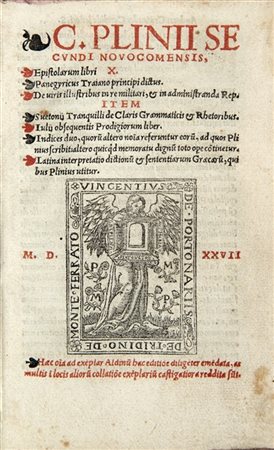 C. PLINII SE
CVNDI NOVOCOMENSIS,
Epistolarum libri X.
Panegyricus Traiano principi dictus.
De viris illustribus in re militari, & in administranda Rep.
ITEM
Suetonij Tranquilli de Claris Grammaticis & Rhetoribus.
Iulij obsequentis Prodigiorum liber.
Indices duo, quorũ altero noĩa referuntur eorũ, ad quos Pli
nius scribit: altero quicqd memoratu dignũ toto ope cõtinetur.
Latina interpretatio dictionũ & sententiarum Græcarũ, qui
bus Plinius utitur.
VINCENTIVS
DE PORTONARIIS
DE TRIDINO DE
MONTE FERRATO
P M
P M
M. D. XXVII
Hæc oĩa ad exẽplar Aldinũ hac editiõe diligẽter emẽdata, ac
multis ĩ locis aliorũ collatiõe exẽplariũ castigatiora reddita sũt.